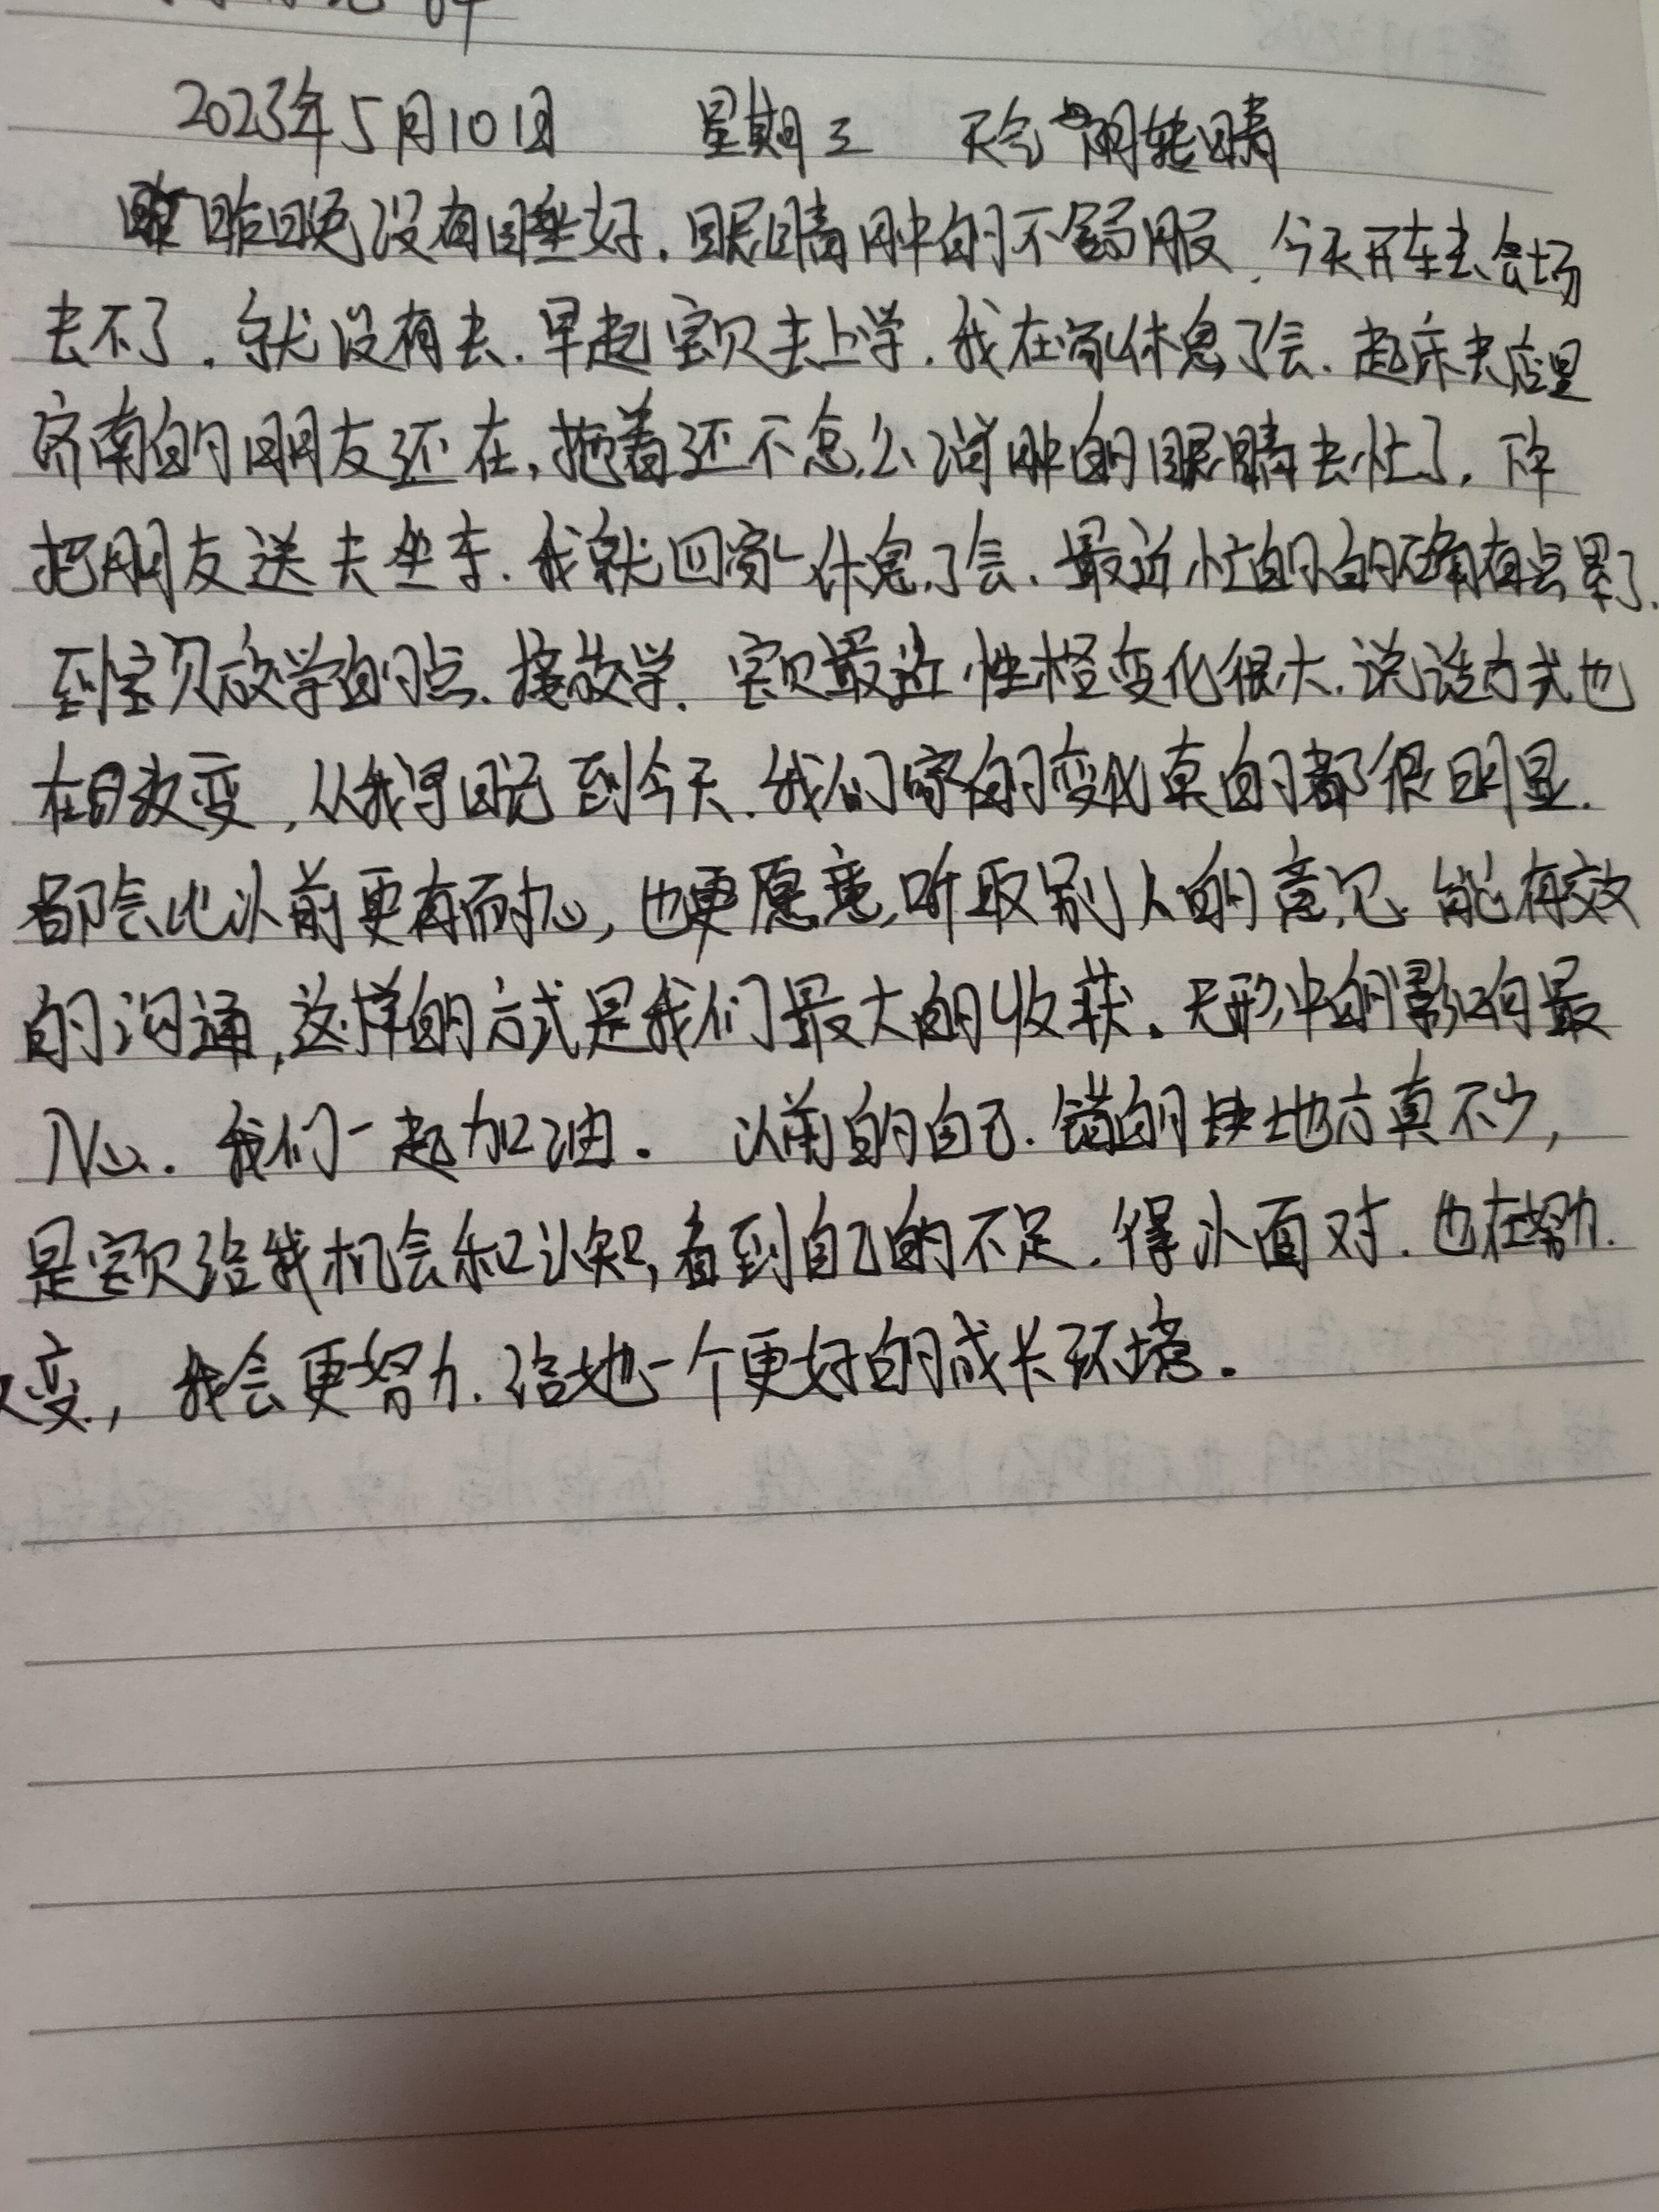 2023年5月10日 星期三 天气 阴转晴
昨晚没有睡好.眼睛肿的不舒服.今天开车去会场
去不了.就没有去.早起宝贝去上学.我在家休息了会.起床去店里
济南的朋友还在,拖着还不怎么消肿的眼睛去忙了.下午
把朋友送去坐车.我就回家休息了会.最近忙的的确有点累了.
到宝贝放学的点.接放学.宝贝最近性格变化很大.说话方式也
在改变,从我学日记到今天.我们家的变化真的都很明显.
都会比以前更有耐心,也更愿意听取别人的意见.能有效
的沟通,这样的方式是我们最大的收获。无形中的影响最
入心.我们一起加油。以前的自己.错的地方真不少,
是宝贝给我机会和认知,看到自己的不足.得以面对.也在努力.
改变,我会更努力.给她一个更好的成长环境.